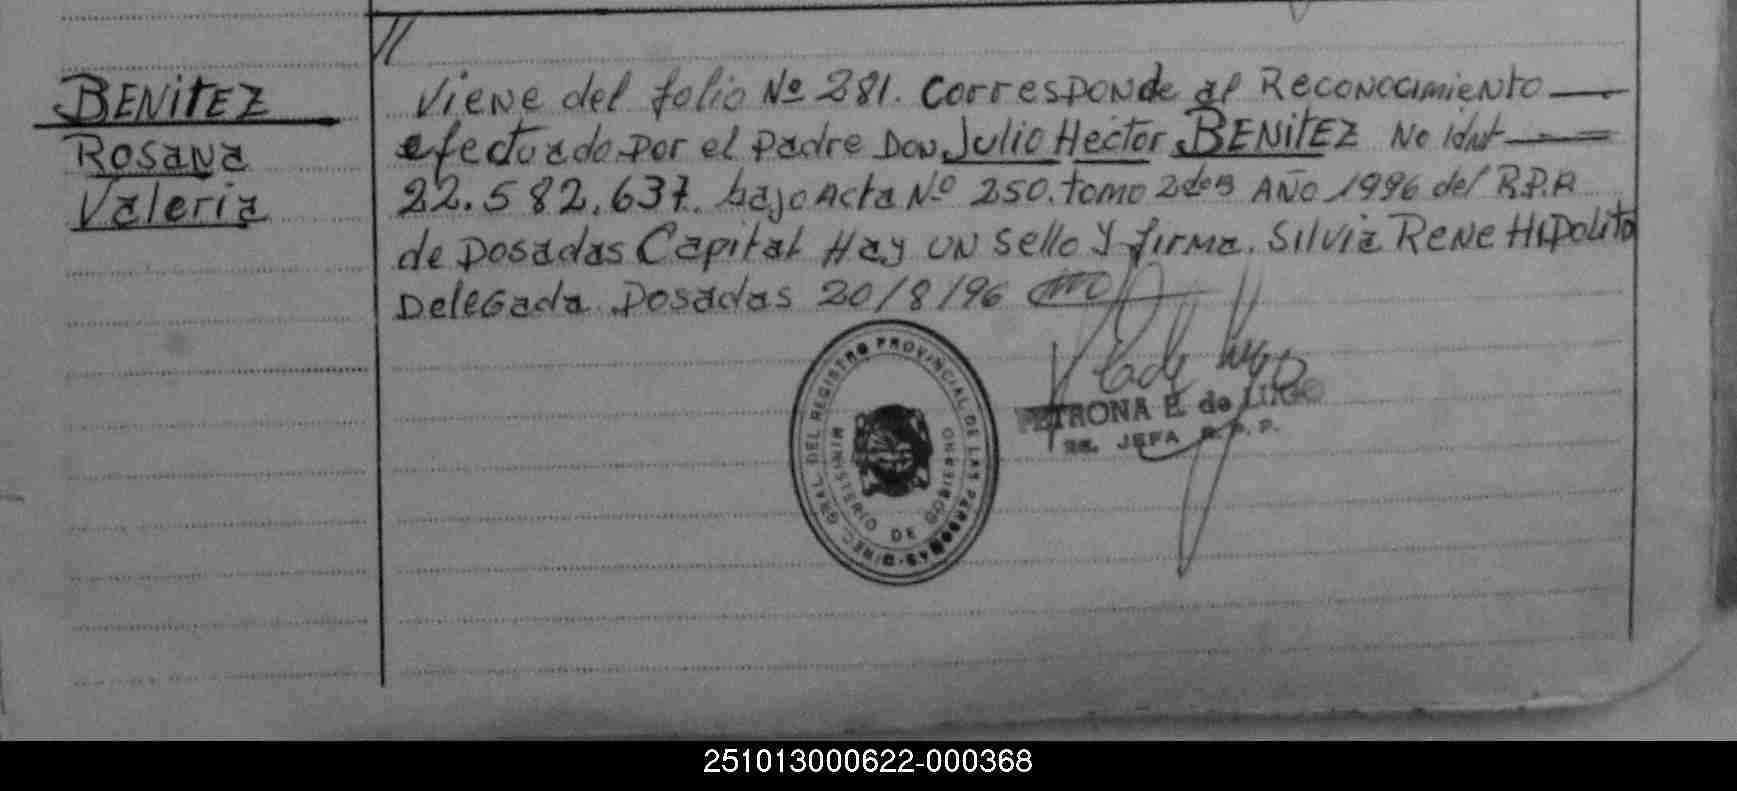 BENITEZ
Rosana
Valeria
//
Viene del folio Nº 281. Corresponde al Reconocimiento
efectuado por el Padre Don Julio Hector BENITEZ No Idnt
22.582.637. bajo Acta Nº 250. tomo 2dos AÑO 1996 del R.P.P
de Posadas Capital Hay un sello y firma. Silvia Rene Hipolito
Delegada. Posadas 20/8/96
DIREC. GRAL. DEL REGISTRO PROVINCIAL DE LAS PERSONAS
MINISTERIO DE GOBIERNO
PETRONA E. de LUGO
JEFA R. P. P.
251013000622-000368